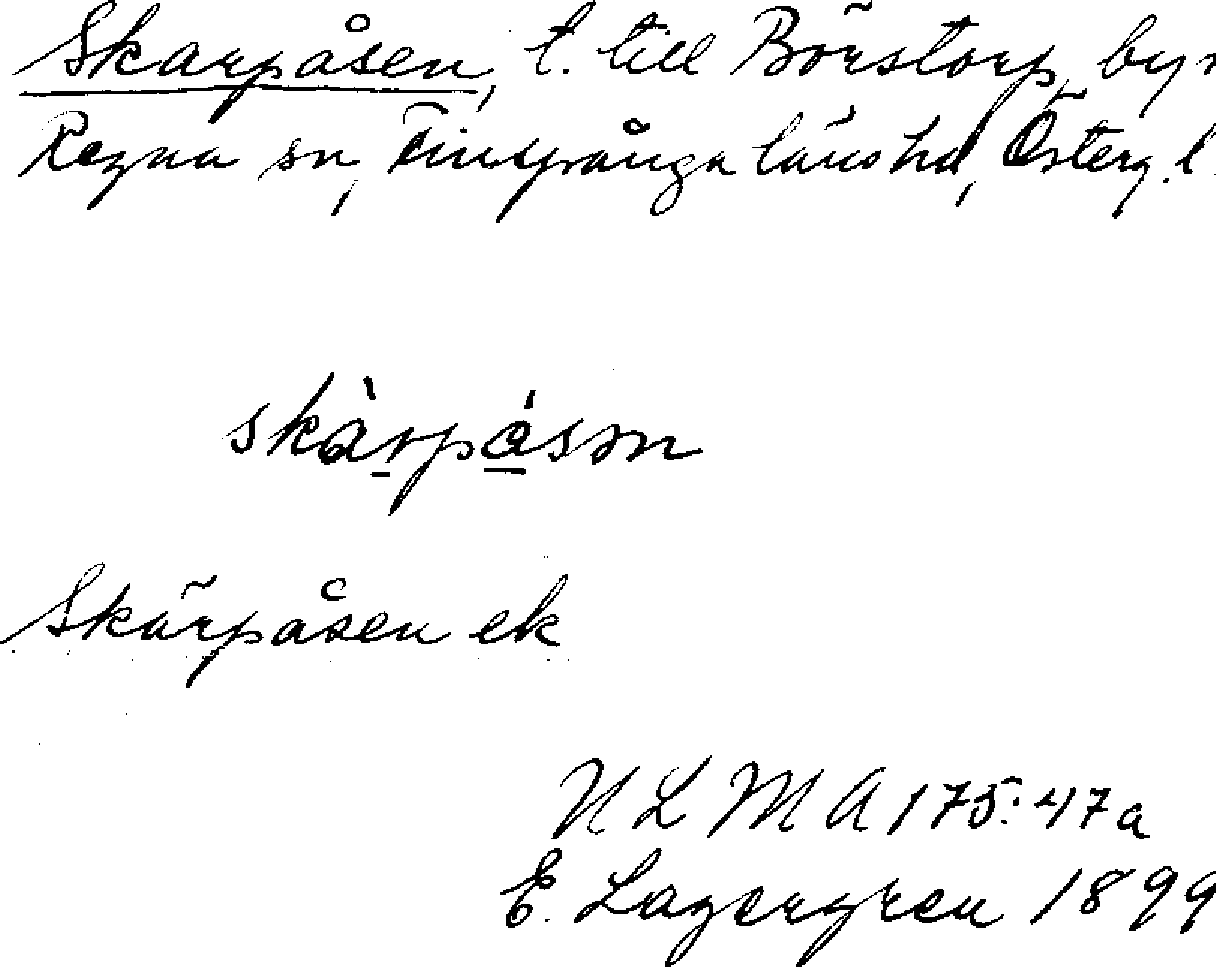 Skarpåsen, t. till Börstorp, by
Regna sn, Finspånga läns hd, Österg. l
skàrpåsən
Skärpåsen ek
U L M A 175:47a
E. Lagergren 1899